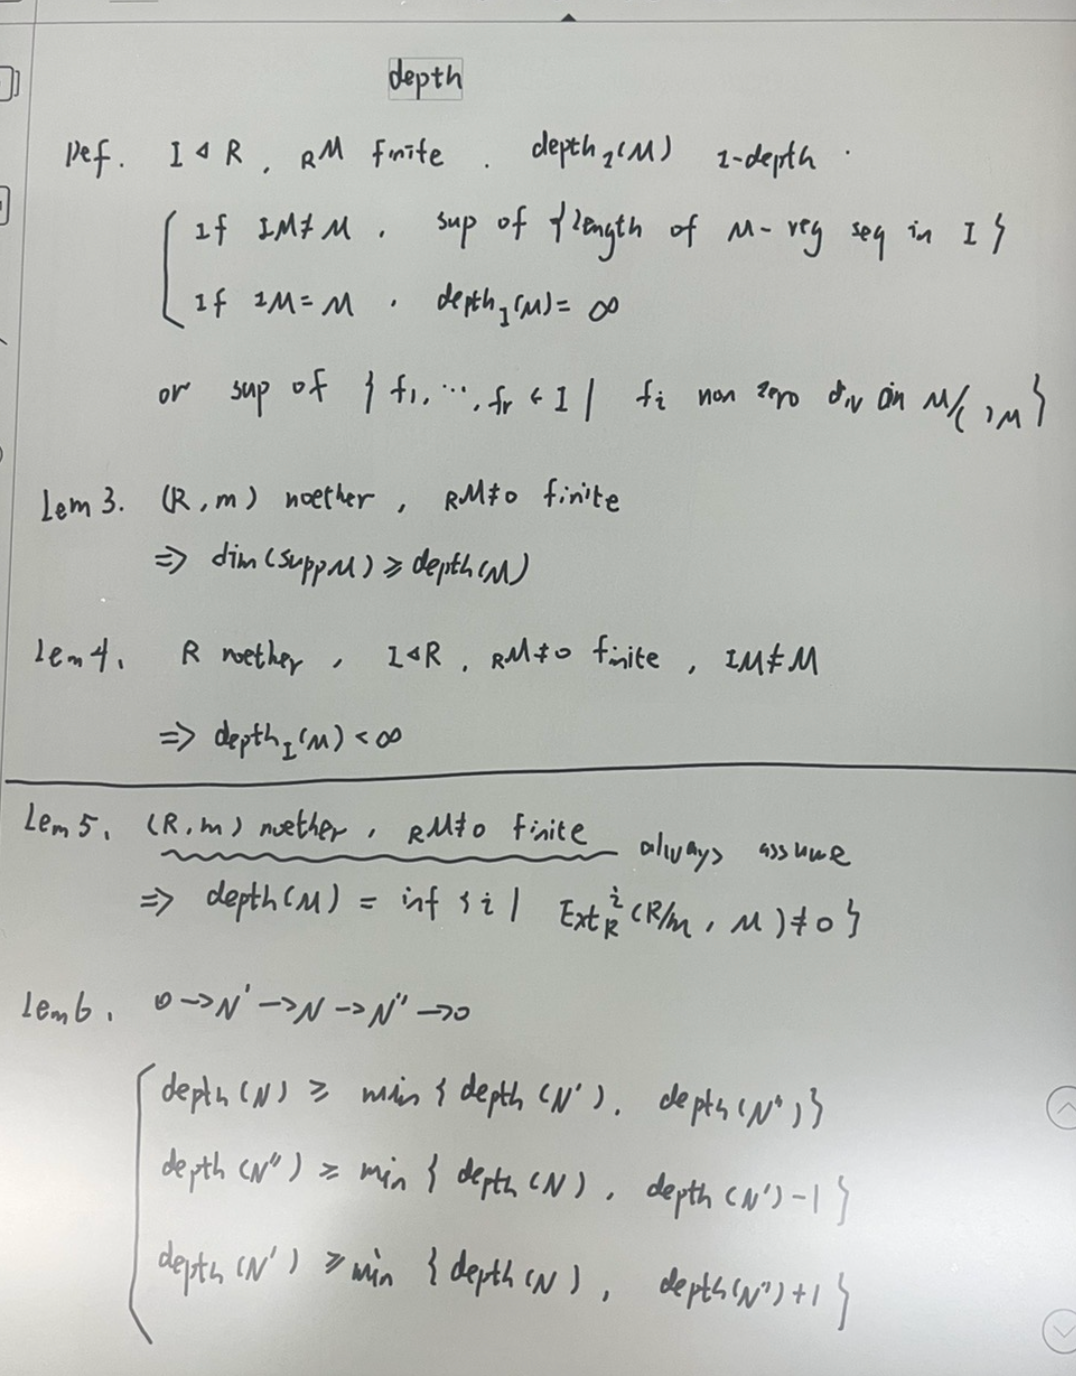 depth
Def. I ◃ R , _R M finite . depth_I(M) I-depth .
If IM ≠ M , sup of {length of M-reg seq in I}
If IM = M , depth_I(M) = ∞
or sup of { f_1, ⋯, f_r ∈ I | f_i non zero div on M/( )M }
Lem 3. (R, m) noether , _R M ≠ 0 finite
⇒ dim(supp M) ⩾ depth(M)
Lem 4. R noether , I ◃ R , _R M ≠ 0 finite , IM ≠ M
⇒ depth_I(M) < ∞
Lem 5. (R, m) noether , _R M ≠ 0 finite always assume
⇒ depth(M) = inf { i | Ext_R^i (R/m , M) ≠ 0 }
Lem 6. 0 → N' → N → N'' → 0
depth(N) ⩾ min { depth(N'), depth(N'') }
depth(N'') ⩾ min { depth(N) , depth(N') - 1 }
depth(N') ⩾ min { depth(N) , depth(N'') + 1 }